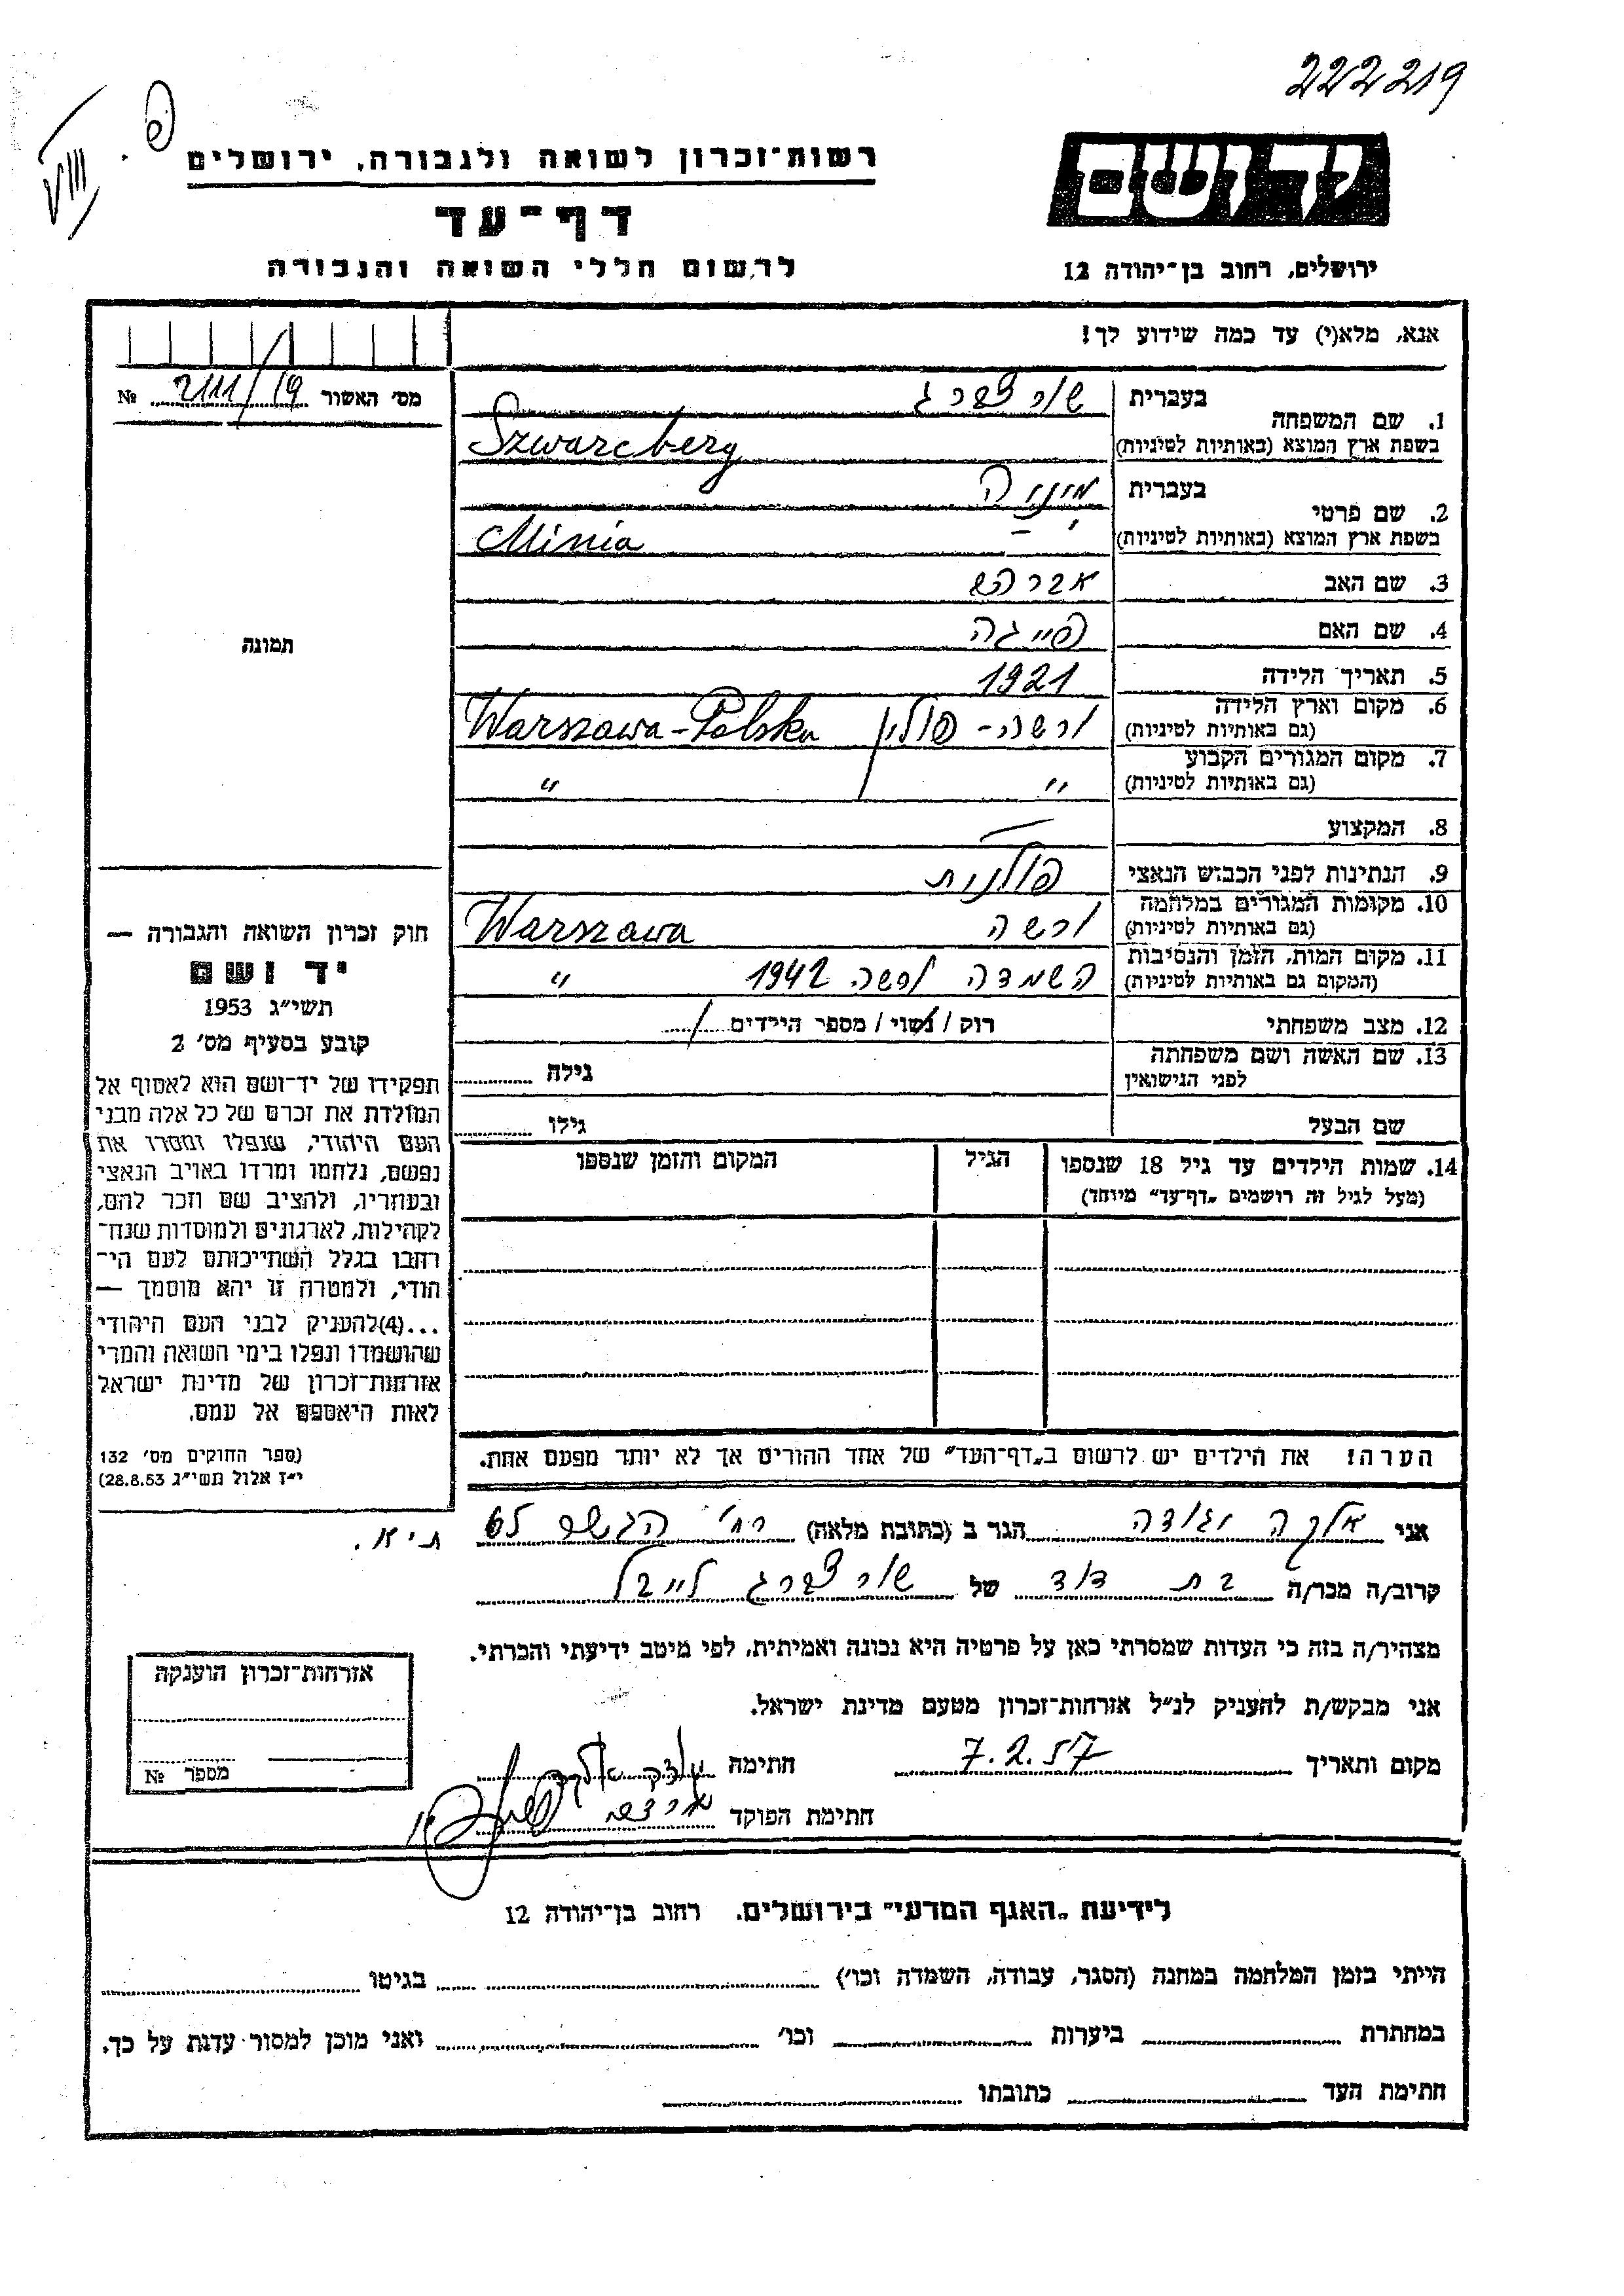 222219
VIII
פ.
רשות־זכרון לשואה ולגבורה, ירושלים
דף־עד
לרשום חללי השואה והגבורה
יד ושם
ירושלים, רחוב בן־יהודה 12
אנא, מלא(י) עד כמה שידוע לך!
מס׳ האשור 2111/19 №
1. שם המשפחה
בעברית שורצברג
בשפת ארץ המוצא (באותיות לטיניות) Szwarcberg
2. שם פרטי
בעברית מיניה
בשפת ארץ המוצא (באותיות לטיניות) Minia
3. שם האב אברהם
4. שם האם פייגה
5. תאריך הלידה 1921
6. מקום וארץ הלידה ורשה - פולין Warszawa-Polska
(גם באותיות לטיניות)
7. מקום המגורים הקבוע " "
(גם באותיות לטיניות)
8. המקצוע —
9. הנתינות לפני הכבוש הנאצי פולנית
10. מקומות המגורים במלחמה ורשה Warszawa
(גם באותיות לטיניות)
11. מקום המות, הזמן והנסיבות השמדה ורשה 1942 "
(המקום גם באותיות לטיניות)
12. מצב משפחתי רוק / נשוי / מספר הילדים
13. שם האשה ושם משפחתה
לפני הנישואין גילה
שם הבעל גילו
14. שמות הילדים עד גיל 18 שנספו
(מעל לגיל זה רושמים „דף־עד” מיוחד)
הגיל
המקום והזמן שנספו
תמונה
חוק זכרון השואה והגבורה —
יד ושם
תשי״ג 1953
קובע בסעיף מס׳ 2
תפקידו של יד־ושם הוא לאסוף אל
המולדת את זכרם של כל אלה מבני
העם היהודי, שנפלו ומסרו את
נפשם, נלחמו ומרדו באויב הנאצי
ובעוזריו, ולהציב שם וזכר להם,
לקהילות, לארגונים ולמוסדות שנח־
רבו בגלל השתייכותם לעם הי־
הודי, ולמטרה זו יהא מוסמך —
...(4)להעניק לבני העם היהודי
שהושמדו ונפלו בימי השואה והמרי
אזרחות־זכרון של מדינת ישראל
לאות היאספם אל עמם.
(ספר החוקים מס׳ 132
י״ז אלול תשי״ג 28.8.53)
הערה! את הילדים יש לרשום ב„דף־העד” של אחד ההורים אך לא יותר מפעם אחת.
אני אלקה הגר ב (כתובת מלאה) רח׳ 65
ת״א.
קרוב/ה מכר/ה בת דוד של שורצברג לייבל
מצהיר/ה בזה כי העדות שמסרתי כאן על פרטיה היא נכונה ואמיתית, לפי מיטב ידיעתי והכרתי.
אני מבקש/ת להעניק לנ״ל אזרחות־זכרון מטעם מדינת ישראל.
מקום ותאריך 7.2.57 חתימה
חתימת הפוקד
אזרחות־זכרון הוענקה
מספר №
לידיעת „האגף המדעי” בירושלים. רחוב בן־יהודה 12
הייתי בזמן המלחמה במחנה (הסגר, עבודה, השמדה וכו׳) בגיטו
במחתרת ביערות וכו׳ ואני מוכן למסור עדות על כך.
חתימת העד כתובתו